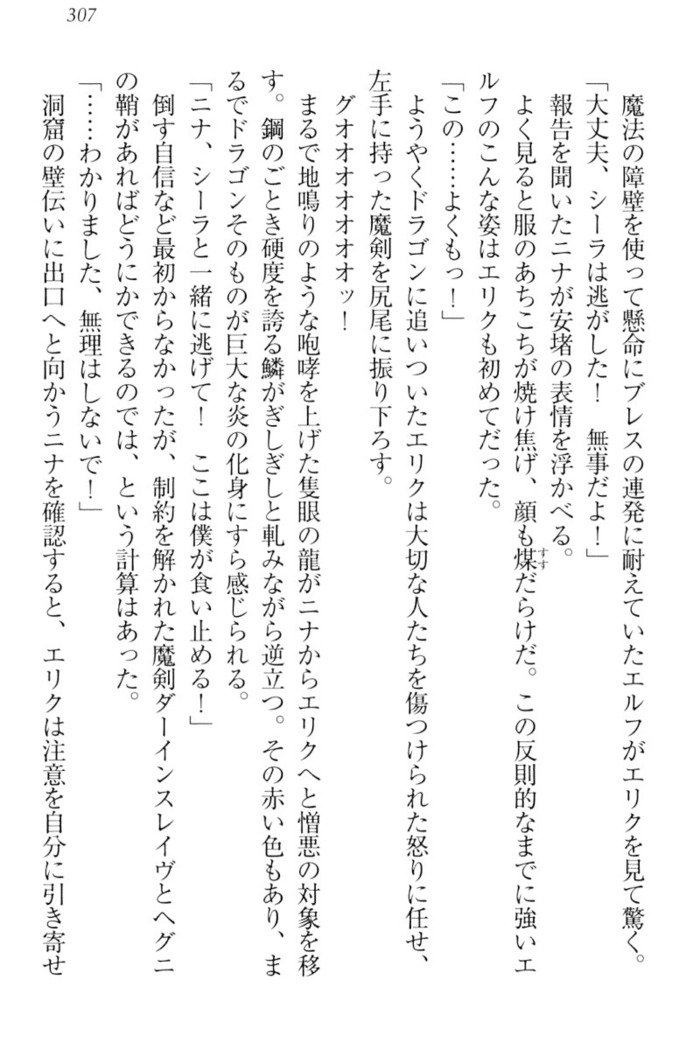 307
魔法の障壁を使って懸命にブレスの連発に耐えていたエルフがエリクを見て驚く。
「大丈夫、シーラは逃がした！　無事だよ！」
報告を聞いたニナが安堵の表情を浮かべる。
よく見ると服のあちこちが焼け焦げ、顔も煤だらけだ。この反則的なまでに強いエ
すす
ルフのこんな姿はエリクも初めてだった。
「この……よくもっ！」
ようやくドラゴンに追いついたエリクは大切な人たちを傷つけられた怒りに任せ、
左手に持った魔剣を尻尾に振り下ろす。
グオオオオオオオッ！
まるで地鳴りのような咆哮を上げた隻眼の龍がニナからエリクへと憎悪の対象を移
す。鋼のごとき硬度を誇る鱗がぎしぎしと軋みながら逆立つ。その赤い色もあり、ま
るでドラゴンそのものが巨大な炎の化身にすら感じられる。
「ニナ、シーラと一緒に逃げて！　ここは僕が食い止める！」
倒す自信など最初からなかったが、制約を解かれた魔剣ダーインスレイヴとヘグニ
の鞘があればどうにかできるのでは、という計算はあった。
「……わかりました、無理はしないで！」
洞窟の壁伝いに出口へと向かうニナを確認すると、エリクは注意を自分に引き寄せ